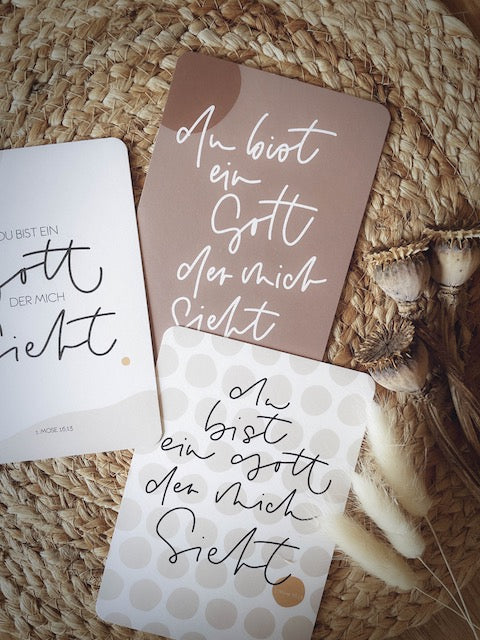 du bist
ein
Gott
der mich
sieht
DU BIST EIN
Gott
DER MICH
sieht
1. MOSE 16:13
du
bist
ein gott
der mich
sieht